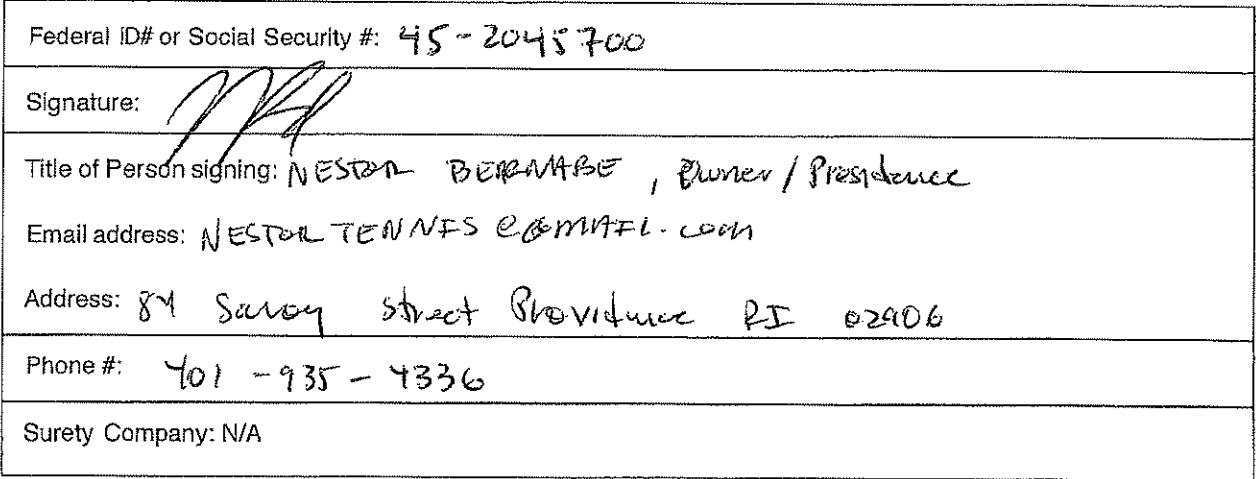 Federal ID# or Social Security #: 45-2045700
Signature:
Title of Person signing: NESTOR BERNABE, Owner/Presidence
Email address: NESTORTENNIS@GMAIL.com
Address: 84 Savoy Street Providence RI 02906
Phone #: 401-935-4336
Surety Company: N/A